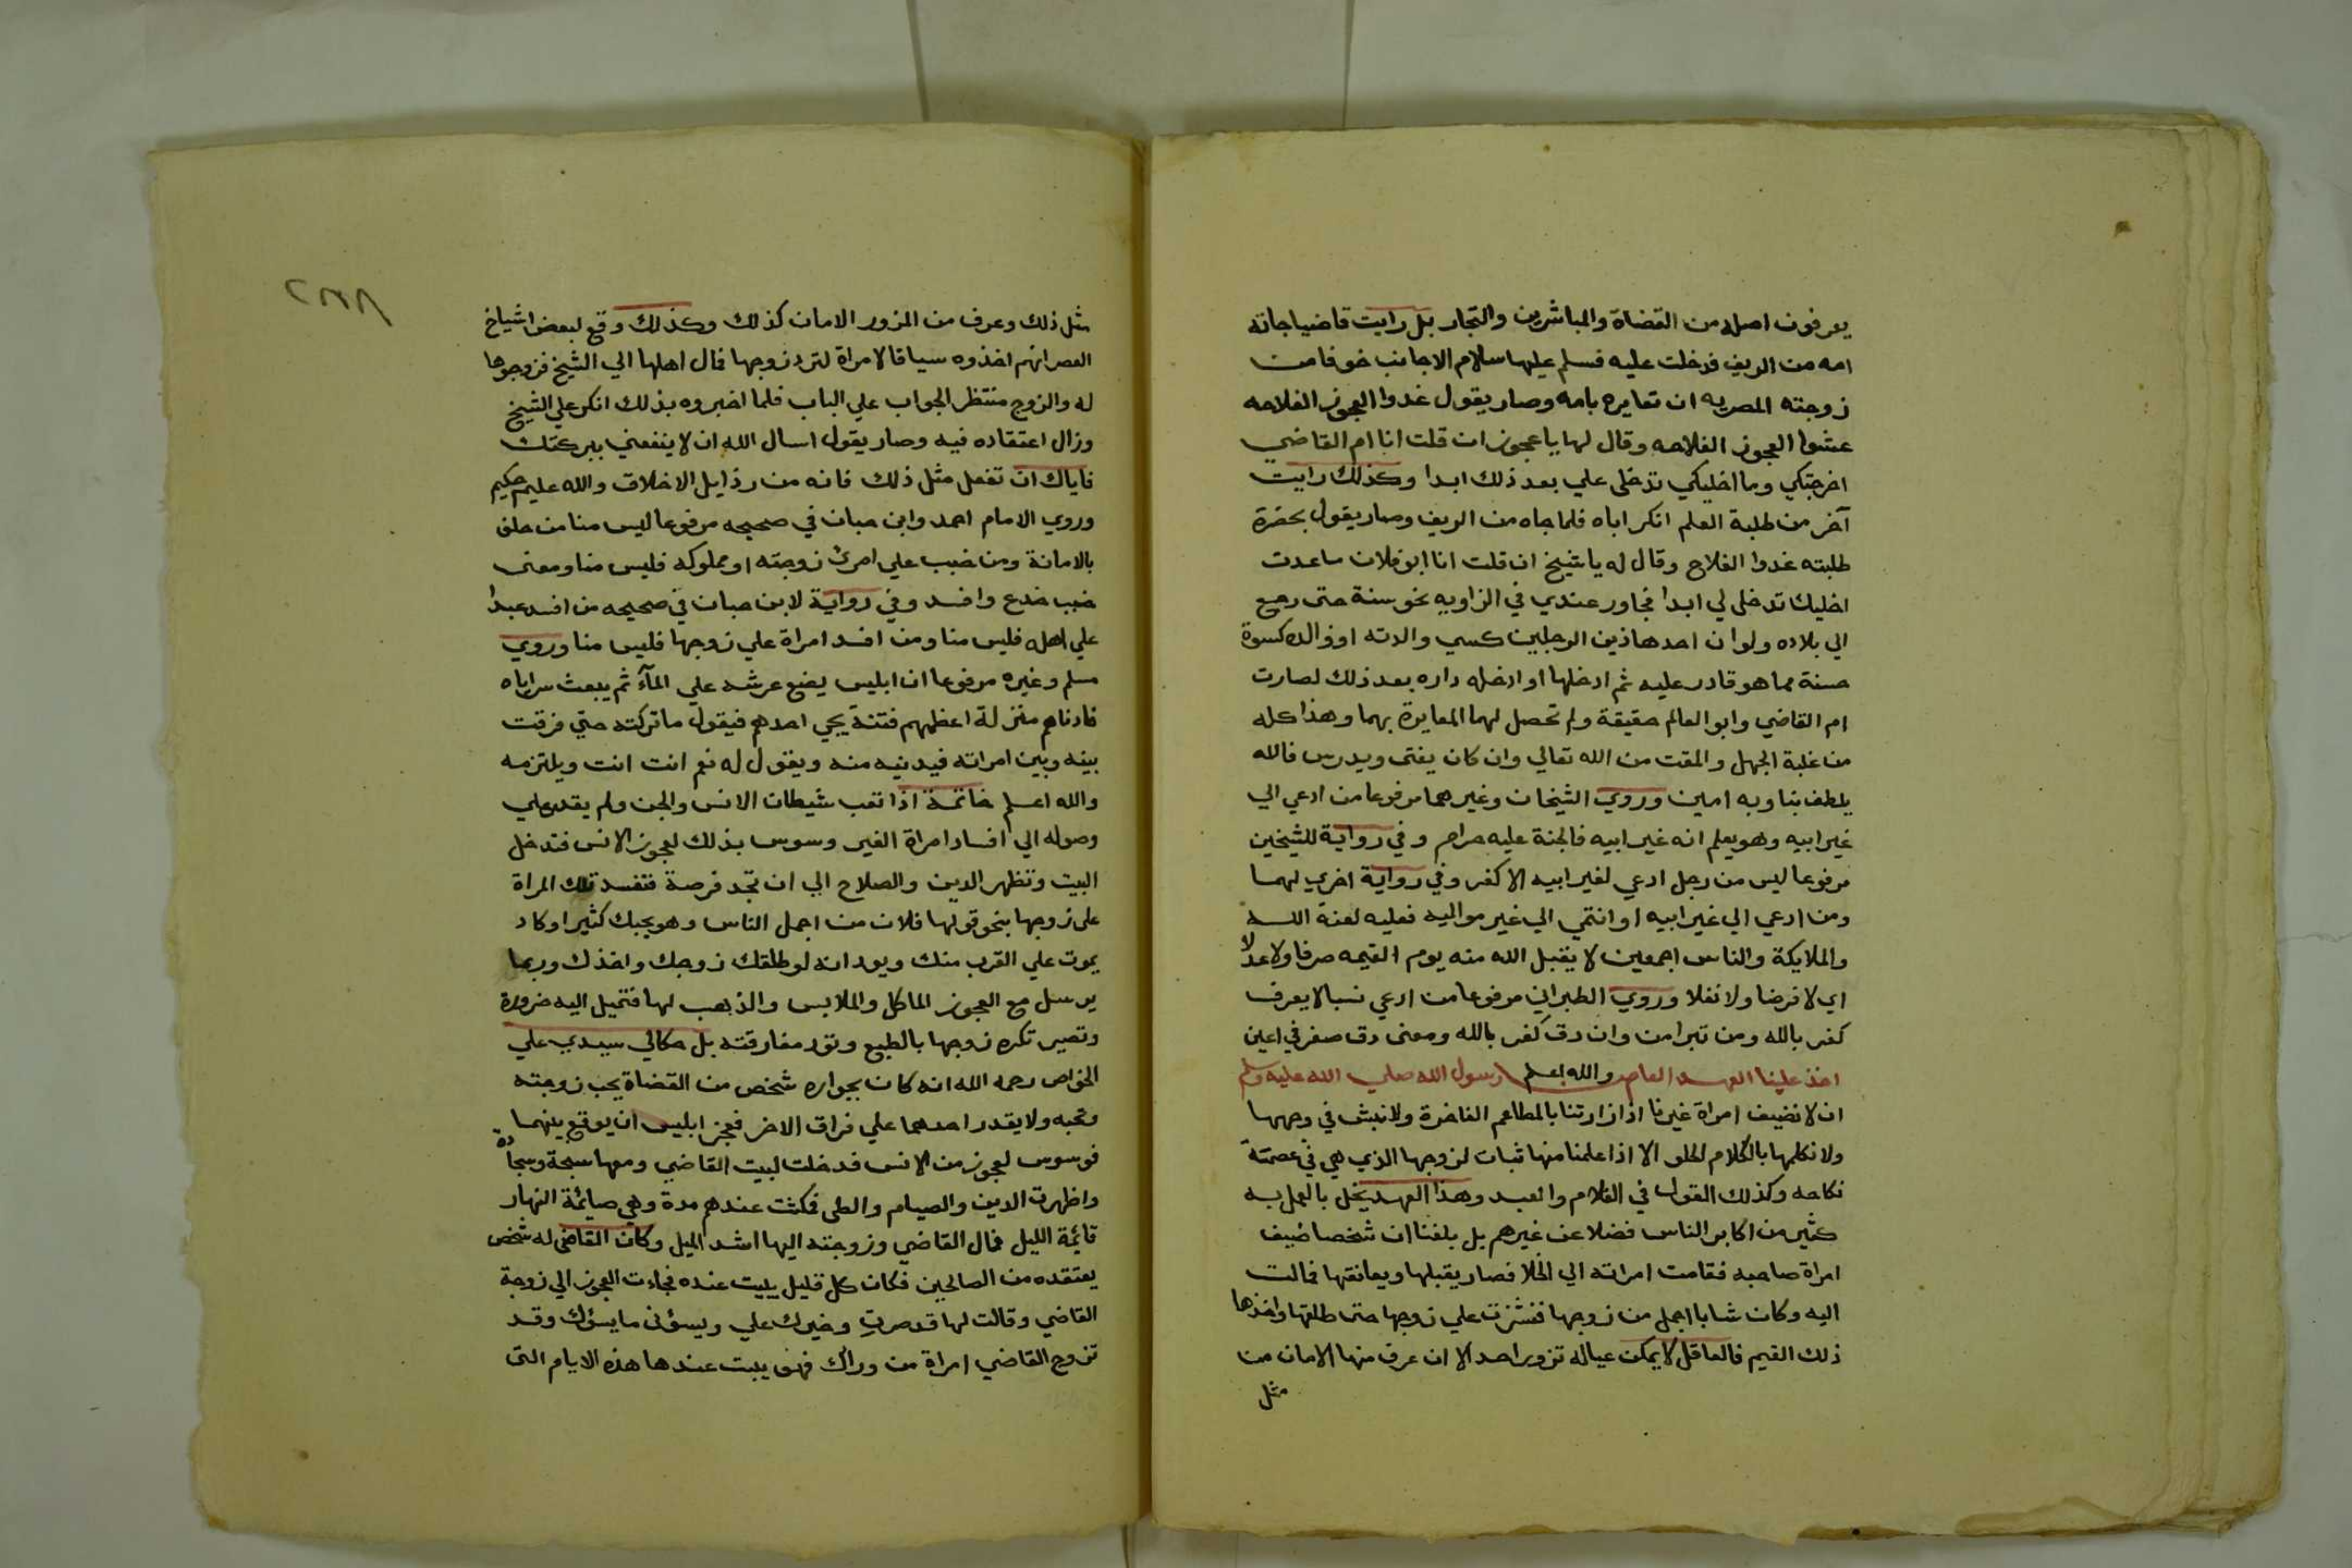 يعرفون اصله من القضاة والمباشرين والتجار بل رايت قاضيا جاته
امه من الريف فدخلت عليه فسلم عليها سلام الاجانب خوفا من
زوجته المصريه ان تعايره بامه وصار يقول غدوا العجوز الفلاحه
عشوا العجوز الفلاحه وقال لها يا عجوز ان قلت انا ام القاضي
اخرجتكي وما اخليكي تدخلى علي بعد ذلك ابدا وكذلك رايت
آخر من طلبة العلم انكر اباه فلما جاه من الريف وصار يقول بحضرة
طلبته غدوا الفلاح وقال له يا شيخ ان قلت انا ابو فلان ما عدت
اخليك تدخلى لي ابدا فجاور عندي في الزاويه نحو سنة حتى رجع
الي بلاده ولو ان احد هاذين الرجلين كسي والدته او والده كسوة
حسنة مما هو قادر عليه ثم ادخلها او ادخله داره بعد ذلك لصارت
ام القاضي وابو العالم حقيقة ولم تحصل لهما المعايرة بهما وهذا كله
من غلبة الجهل والمقت من الله تعالي وان كان يفتى ويدرس فالله
يلطف بنا وبه امين وروي الشيخان وغيرهما مرفوعا من ادعي الي
غير ابيه وهو يعلم انه غير ابيه فالجنة عليه حرام وفي رواية للشيخين
مرفوعا ليس من رجل ادعي لغير ابيه الا كفر وفي رواية اخري لهما
ومن ادعي الي غير ابيه او انتمي الي غير مواليه فعليه لعنة الله
والملايكة والناس اجمعين لا يقبل الله منه يوم القيمه صرفا ولا عدلا
اي لا فرضا ولا نفلا وروي الطبراني مرفوعا من ادعي نسبا لا يعرف
كفر بالله ومن تبرا من وان دق كفر بالله ومعنى دق صغر في اعين
اخذ علينا العهد العام والله اعلم رسول الله صلي الله عليه وسلم
ان لا نضيف امراة غيرنا اذا زارتنا بالمطاعم الفاخرة ولا نبش في وجهها
ولا نكلمها بالكلام الحلو الا اذا علمنا منها ثبات لزوجها الذي هي في عصمة
نكاحه وكذلك القول في الغلام والعبد وهذا العهد يخل بالعمل به
كثير من اكابر الناس فضلا عن غيرهم بل بلغنا ان شخصا ضيف
امراة صاحبه فقامت امراته الي الخلا فصار يقبلها ويعانقها فمالت
اليه وكان شابا اجمل من زوجها فنشزت علي زوجها حتى طلقها واخذها
ذلك القيم فالعاقل لا يمكن عياله تزور احد الا ان عرف منها الامان من
مثل
مثل ذلك وعرف من المزور الامان كذلك وكذلك وقع لبعض اشياخ
العصر انهم اخذوه سياقا لامراة لترد زوجها فمال اهلها الي الشيخ فزوجوها
له والزوج منتظر الجواب علي الباب فلما اخبروه بذلك انكر علي الشيخ
وزال اعتقاده فيه وصار يقول اسال الله ان لا ينفعني ببركتك
فاياك ان تفعل مثل ذلك فانه من رذايل الاخلاق والله عليم حكيم
وروي الامام احمد وابن حبان في صحيحه مرفوعا ليس منا من حلف
بالامانة ومن خبب علي امرئ زوجته او مملوكه فليس منا ومعنى
خبب خدع وافسد وفي رواية لابن حبان في صحيحه من افسد عبدا
علي اهله فليس منا ومن افسد امراة علي زوجها فليس منا وروي
مسلم وغيره مرفوعا ان ابليس يضع عرشه علي المآء ثم يبعث سراياه
فادناهم منزلة اعظمهم فتنة يجي احدهم فيقول ما تركته حتي فرقت
بينه وبين امراته فيدنيه منه ويقول له نعم انت انت ويلتزمه
والله اعلم خاتمة اذا تعب شيطان الانس والجن ولم يقدر علي
وصوله الي افساد امراة الغير وسوس بذلك لعجوز الانس فتدخل
البيت وتظهر الدين والصلاح الي ان تجد فرصة فتفسد تلك المراة
على زوجها بنحو قولها فلان من اجمل الناس وهو يحبك كثيرا وكاد
يموت علي القرب منك ويود انه لو طلقك زوجك واخذك وربما
يرسل مع العجوز الماكل والملابس والذهب لها فتميل اليه ضرورة
وتصير تكره زوجها بالطبع وتود مفارقته بل حكالي سيدي علي
الخواص رحمه الله انه كان بجواره شخص من القضاة يحب زوجته
وتحبه ولا يقدر احدهما علي فراق الاخر فعجز ابليس ان يوقع بينهما
فوسوس لعجوز من الانس فدخلت لبيت القاضي ومعها سبحة وسجادة
واظهرت الدين والصيام والطى فمكثت عندهم مدة وهي صايمة النهار
قائمة الليل فمال القاضي وزوجته اليها اشد الميل وكان القاضى له شخص
يعتقده من الصالحين فكان كل قليل يبيت عنده فجاءت العجوز الي زوجة
القاضي وقالت لها قد صرتِ وخيرك علي ويسؤني ما يسؤك وقد
تزوج القاضي امراة من وراك فهو يبت عندها هذه الايام التى